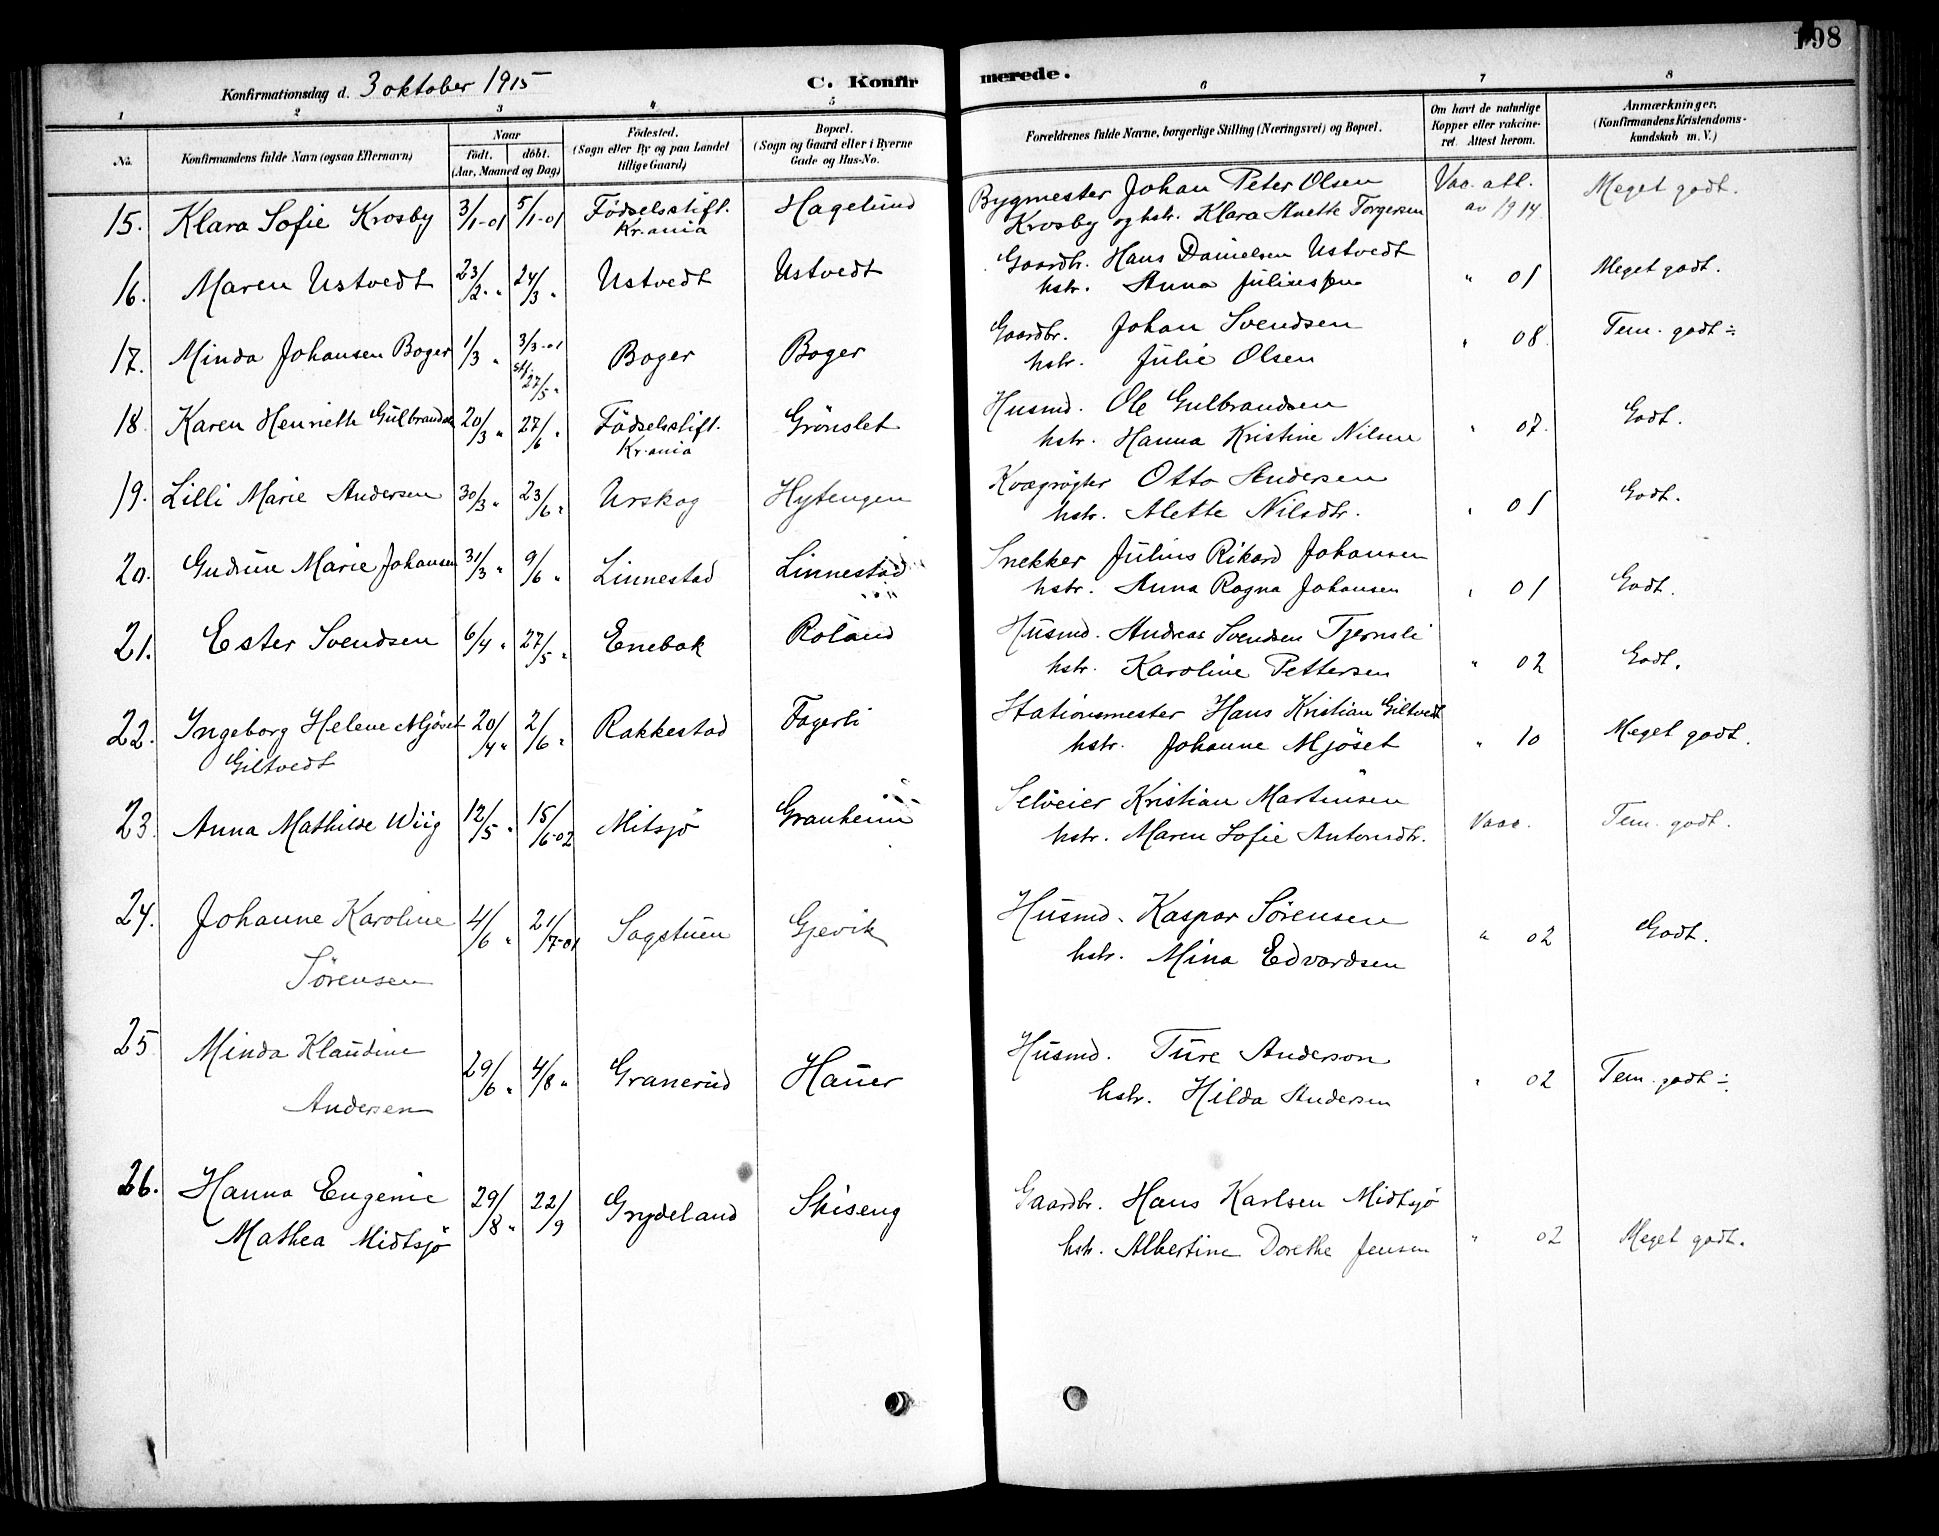 198
Konfirmationsdag d. 3 oktober 1915
C. Konfirmerede.
1 2 3 4 5 6 7 8
No.
Konfirmandens fulde Navn (ogsaa Efternavn)
Naar
födt. döbt.
(Aar, Maaned og Dag)
Födested.
(Sogn eller By og paa Landet
tillige Gaard)
Bopæl.
(Sogn og Gaard eller i Byerne
Gade og Hus-No.
Forældrenes fulde Navne, borgerlige Stilling (Næringsvei) og Bopæl.
Om havt de naturlige
Kopper eller vakcine-
ret. Attest herom.
Anmærkninger.
(Konfirmandens Kristendoms-
kundskab m. V.)
15. Klara Sofie Krosby 3/1-01 5/1-01 Födselsstift. Hagelund Bygmester Johan Peter Olsen Vac. att. Meget godt.
Kr.ania Krosby og hstr. Klara Anette Torgersen av 1914
16. Maren Ustvedt 23/2 " 24/3 " Ustvedt Ustvedt Gaardbr. Hans Danielsen Ustvedt " 01 Meget godt.
hstr. Anna Juliussen
17. Minda Johansen Boger 1/3 " 3/3-01 Boger Boger Gaardbr. Johan Svendsen " 08. Tem. godt ÷
st. 27/5 " hstr. Julie Olsen
18. Karen Henriette Gulbrandsen 20/3 " 27/6 " Födselsstift. Grönslet Husmd. Ole Gulbrandsen " 07. Godt.
Kr.ania hstr. Hanna Kristine Nilsen
19. Lilli Marie Andersen 30/3 " 23/6 " Urskog Hytengen Kvægrögter Otto Andersen " 01 Godt.
hstr. Alette Nilsdtr.
20. Gudrun Marie Johansen 31/3 " 9/6 " Linnestad Linnestad Snekker Julius Rikard Johansen " 01 Godt.
hstr. Anna Ragna Johansen
21. Ester Svendsen 6/4 " 27/5 " Enebak Roland Husmd. Andreas Svendsen Tjernsli " 02 Godt.
hstr. Karoline Pettersen
22. Ingeborg Helene Mjöset 20/4 " 2/6 " Rakkestad Fagerli Stationsmester Hans Kristian Giltvedt " 10 Meget godt.
Giltvedt hstr. Johanne Mjöset
23. Anna Mathilde Wiig 12/5 " 15/6-02 Mitsjö Granheim Selveier Kristian Martinsen Vacc. Tem. godt.
hstr. Maren Sofie Antonsdtr.
24. Johanne Karoline 4/6 " 21/7-01 Sagstuen Gjevik Husmd. Kaspar Sörensen " 02 Godt.
Sörensen hstr. Mina Edvardsen
25 Minda Klaudine 29/6 " 4/8 " Granerud Hauer Husmd. Ture Anderson " 02 Tem. godt ÷
Andersen hstr. Hilda Andersen
26. Hanna Eugenie 29/8 " 22/9 Grydeland Skiseng Gaardbr. Hans Karlsen Midtsjö " 02 Meget godt.
Mathea Midtsjö hstr. Albertine Dorethe Jensen